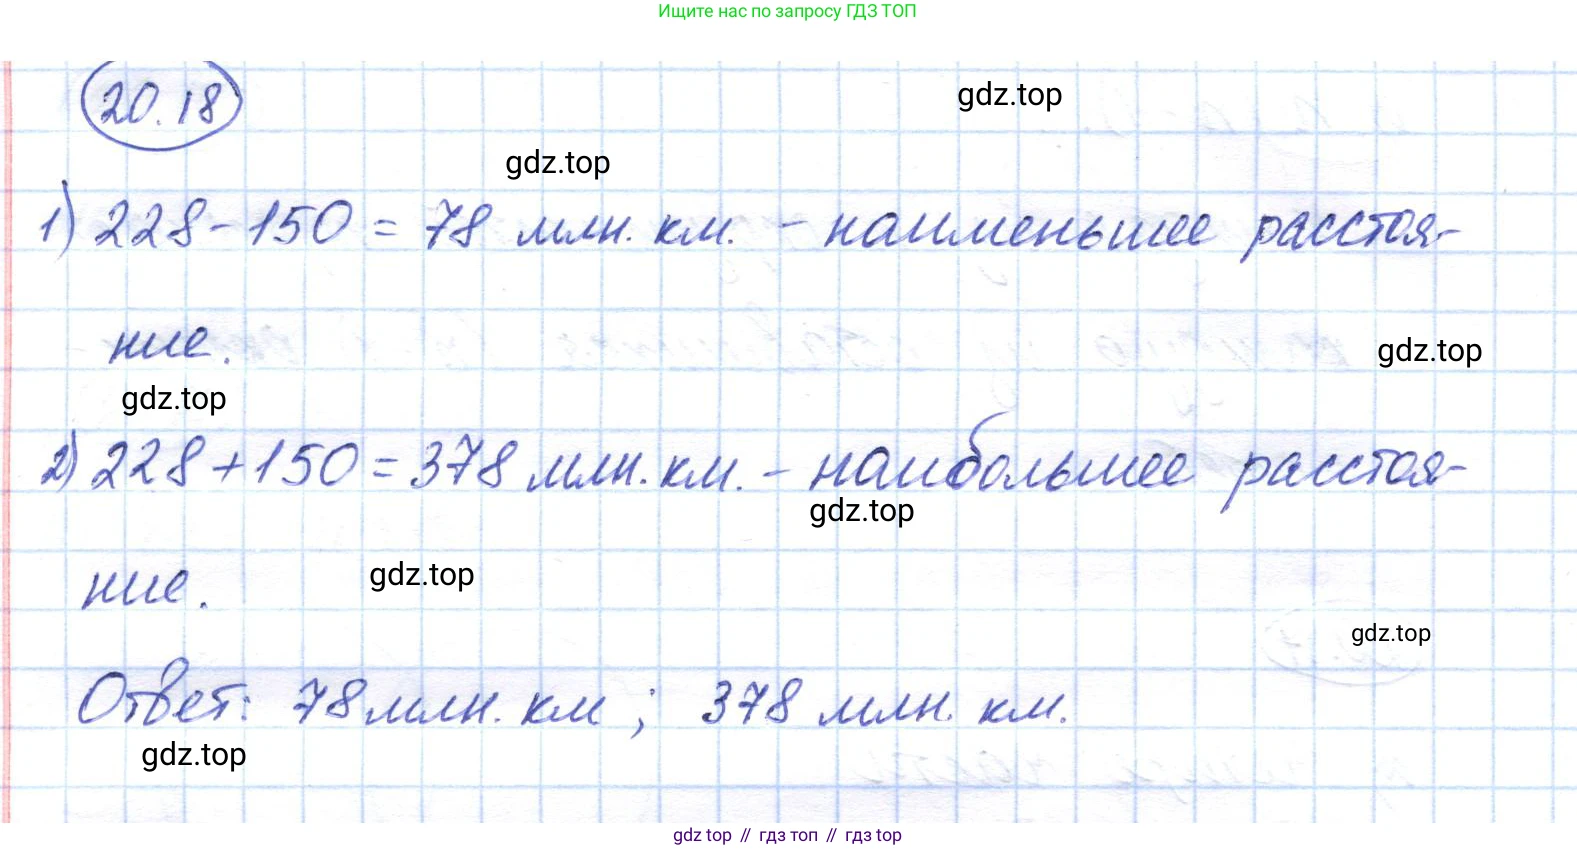 Ищите нас по запросу ГДЗ ТОП
20.18
gdz.top
gdz.top
1) 228 - 150 = 78 млн. км. - наименьшее расстоя-
ние.
gdz.top
gdz.top
2) 228 + 150 = 378 млн. км. - наибольшее расстоя-
gdz.top
ние.
gdz.top
gdz.top
Ответ: 78 млн. км ; 378 млн. км.
gdz.top
gdz top // гдз топ // гдз top